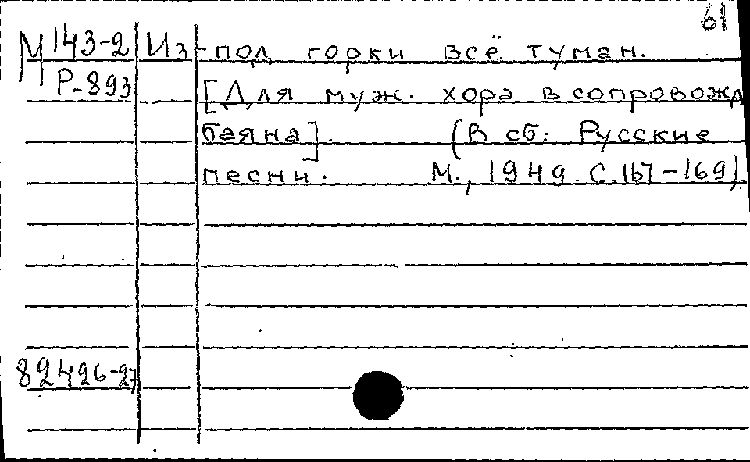 61
М 143-2 Из-под горки всё туман.
Р-893 [Для муж. хора в сопровожд
баяна]. (В сб: Русские
песни. М., 1949. С.167-169)
82426-27